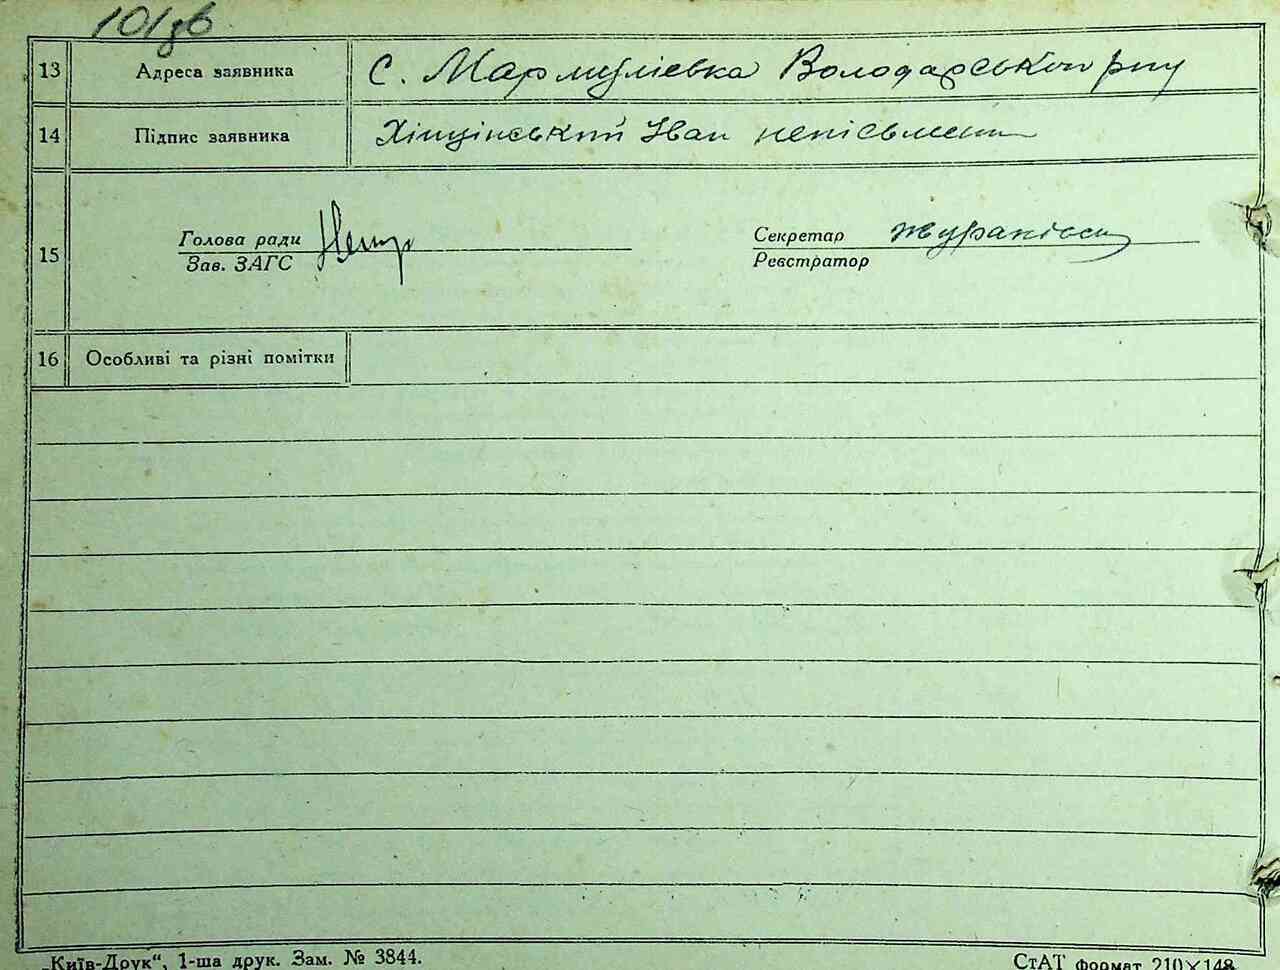 101зв
13 Адреса заявника с. Мармуліевка Володарськои рну
14 Підпис заявника Хінцінський Іван непісьмени
Голова ради
Секретар Журанівск
15
Зав. ЗАГС
Реєстратор
16 Особливі та різні помітки
„Київ-Друк“, 1-ша друк. Зам. № 3844.
СтАТ формат 210×148.